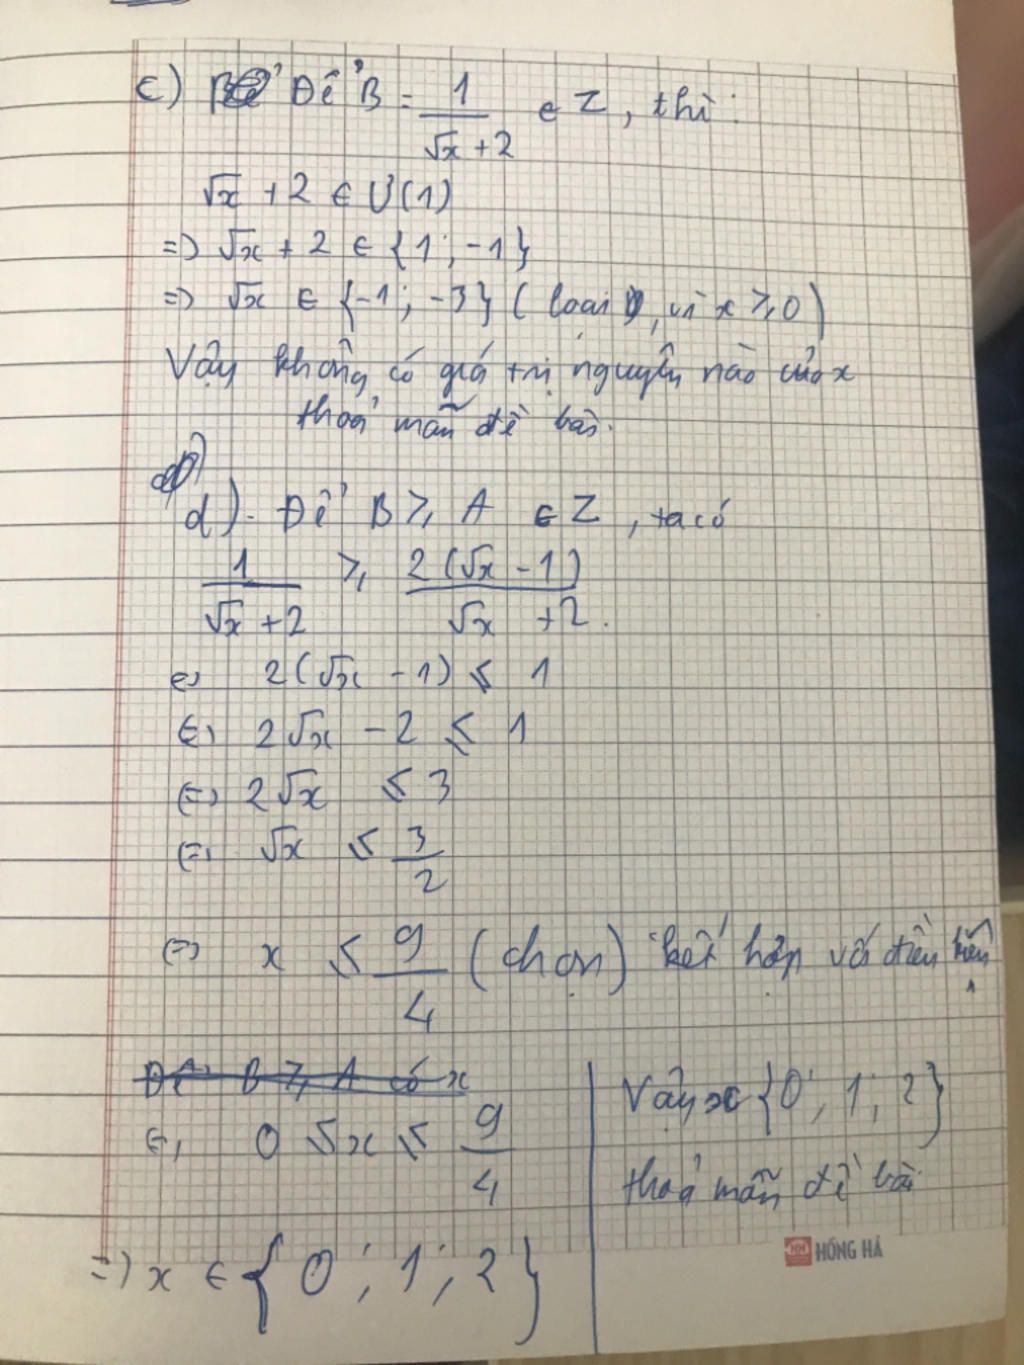 c) Để B = 1/(√x + 2) ∈ Z, thì:
√x + 2 ∈ Ư(1)
=> √x + 2 ∈ {1; -1}
=> √x ∈ {-1; -3} (loại, vì x ≥ 0)
Vậy không có giá trị nguyên nào của x
thoả mãn đề bài.
d). Để B ≥ A ∈ Z, ta có
1/(√x + 2) ≥ 2(√x - 1)/(√x + 2).
<=> 2(√x - 1) ≤ 1
<=> 2√x - 2 ≤ 1
<=> 2√x ≤ 3
<=> √x ≤ 3/2
<=> x ≤ 9/4 (chọn) kết hợp với điều kiện
Để B ≥ A có x
<=> 0 ≤ x ≤ 9/4
=> x ∈ {0; 1; 2}
Vậy x ∈ {0; 1; 2}
thoả mãn đề bài
HỒNG HÀ